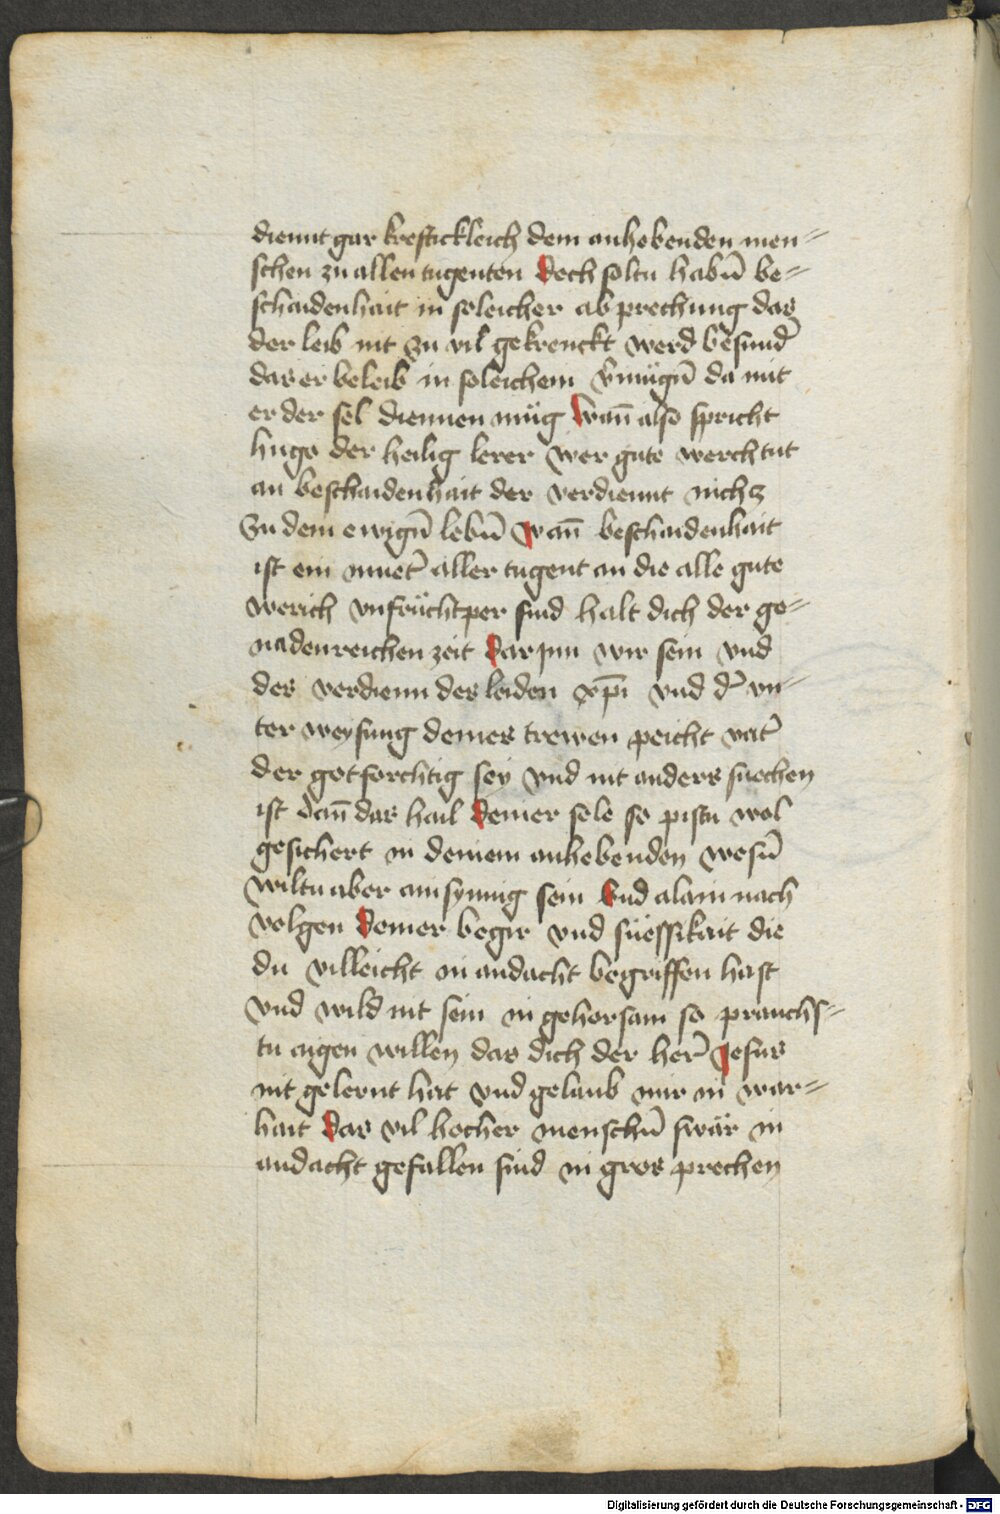 diennt gar kreftickleich dem anhebenden men=
schen zu allen tugenten doch soltu habn̄ be=
schaidenhait in soleicher ab prechung das
der leib nit zu vil gekrenckt werd besund̄
das er beleib in soleichem v̄mügn̄ da mit
er der sel diennen müg wan̄ also spricht
hugo der heilig lerer wer gute werch tut
an beschaidenhait der verdiennt nichz
zu dem ewign̄ lebn̄ wan̄ beschaidenhait
ist ein muet̄ aller tugent an die alle gute
werich vnfrüchtper sind halt dich der ge=
nadenreichen zeit dar jnn wir sein vnd
des verdienn des leiden xp̄i vnd d̄ vn=
ter weysung deines trewen peicht vat̄
der gotforchtig sey vnd nit anders suechen
ist dan̄ das hail deiner sele so pistu wol
gesichert in deinem anhebenden wesn̄
wiltu aber ainsynnig sein vnd alain nach
volgen deiner begir vnd süessikait die
du villeicht in andacht begriffen hast
vnd wild nit sein in gehorsam so prauchs=
tu aigen willen das dich der her̄ jesus
nit gelernt hat vnd gelaub mir in war=
hait das vil hocher menschn̄ swär in
andacht gefallen sind in gros prechen
Digitalisierung gefördert durch die Deutsche Forschungsgemeinschaft - DFG